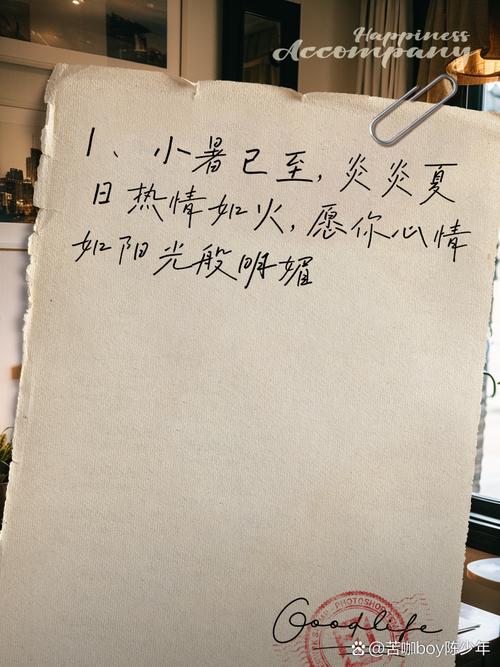 Happiness
Accompany
1、小暑已至,炎炎夏
日热情如火,愿你心情
如阳光般明媚
Goodlife
PHOTOSHOP
苦咖boy陈少年